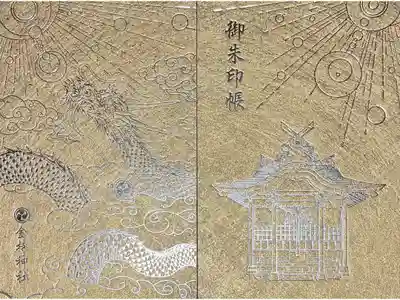 御朱印帳
金杉神社